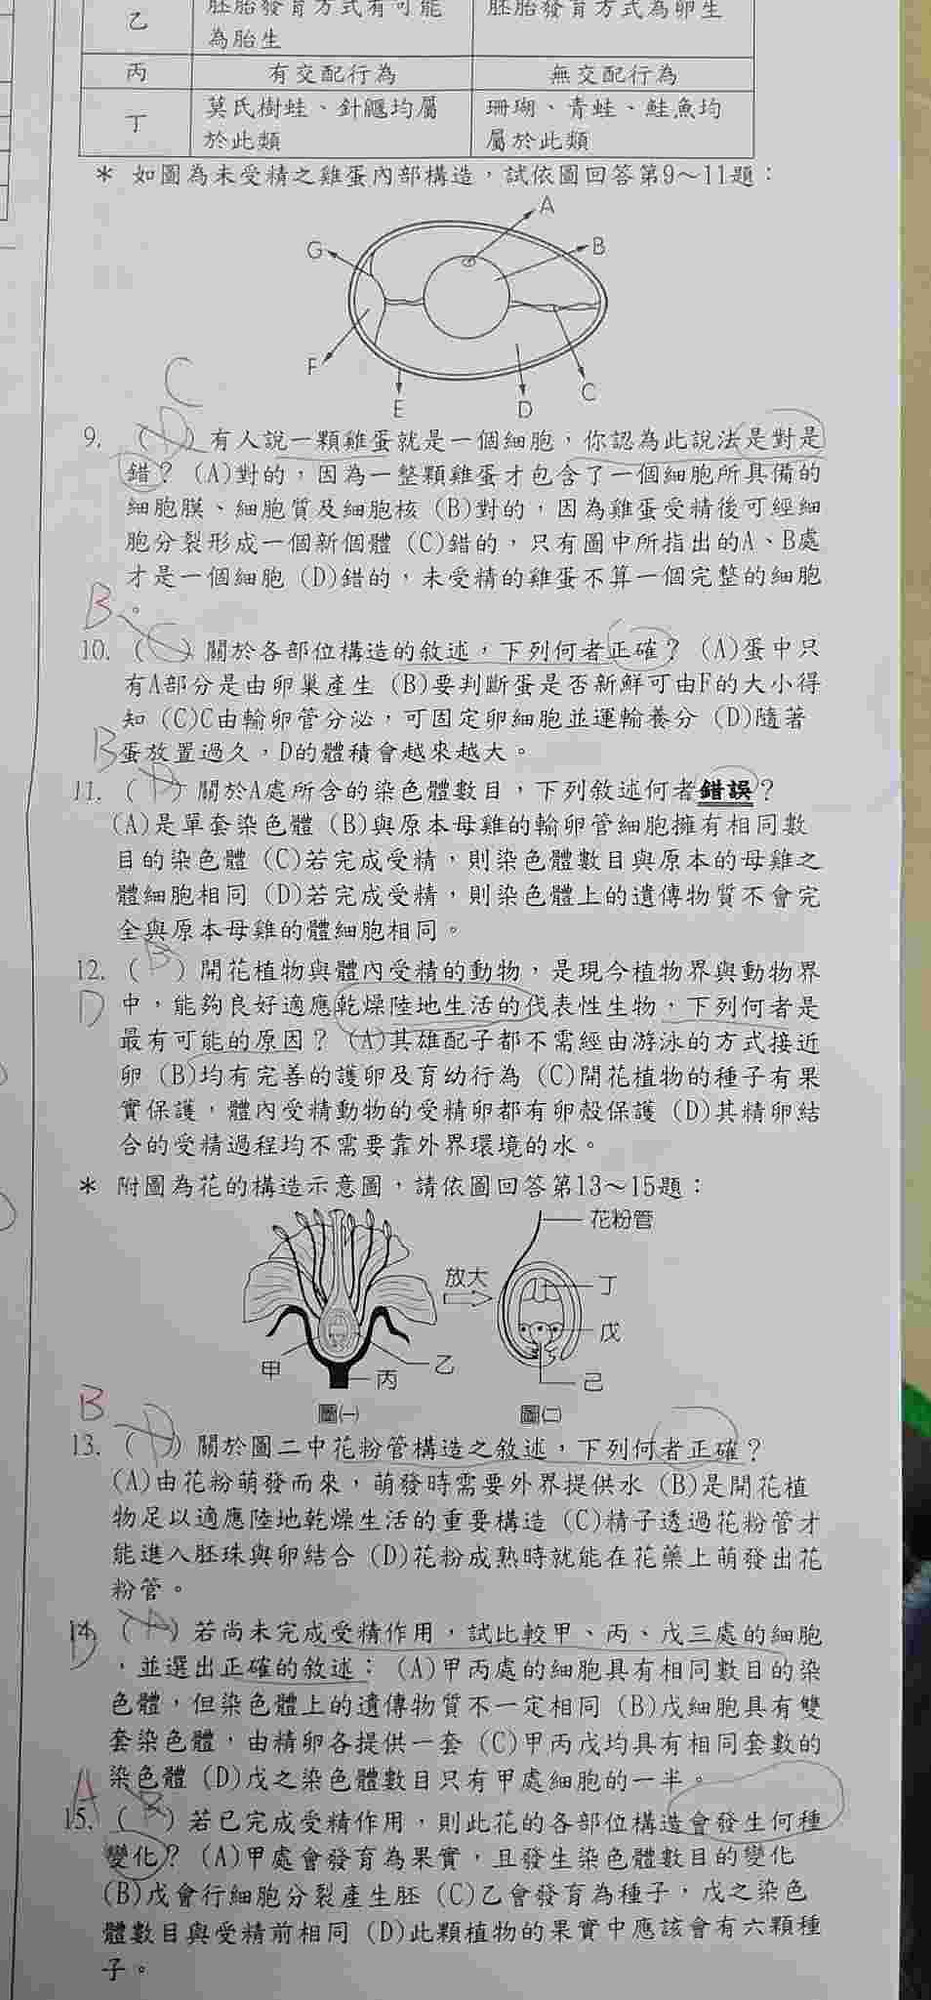 乙
胚胎發育方式有可能
為胎生
胚胎發育方式為卵生
丙
有交配行為
無交配行為
丁
莫氏樹蛙、針鼴均屬
於此類
珊瑚、青蛙、鮭魚均
屬於此類
* 如圖為未受精之雞蛋內部構造，試依圖回答第9～11題：
A
B
G
F
E
D
C
C
9. (D)有人說一顆雞蛋就是一個細胞，你認為此說法是對是
錯？(A)對的，因為一整顆雞蛋才包含了一個細胞所具備的
細胞膜、細胞質及細胞核 (B)對的，因為雞蛋受精後可經細
胞分裂形成一個新個體 (C)錯的，只有圖中所指出的A、B處
才是一個細胞 (D)錯的，未受精的雞蛋不算一個完整的細胞
。
B
10. (C)關於各部位構造的敘述，下列何者正確？(A)蛋中只
有A部分是由卵巢產生 (B)要判斷蛋是否新鮮可由F的大小得
知 (C)C由輸卵管分泌，可固定卵細胞並運輸養分 (D)隨著
蛋放置過久，D的體積會越來越大。
B
11. (D)關於A處所含的染色體數目，下列敘述何者錯誤？
(A)是單套染色體 (B)與原本母雞的輸卵管細胞擁有相同數
目的染色體 (C)若完成受精，則染色體數目與原本的母雞之
體細胞相同 (D)若完成受精，則染色體上的遺傳物質不會完
全與原本母雞的體細胞相同。
12. (B)開花植物與體內受精的動物，是現今植物界與動物界
D
中，能夠良好適應乾燥陸地生活的代表性生物，下列何者是
最有可能的原因？(A)其雄配子都不需經由游泳的方式接近
卵 (B)均有完善的護卵及育幼行為 (C)開花植物的種子有果
實保護，體內受精動物的受精卵都有卵殼保護 (D)其精卵結
合的受精過程均不需要靠外界環境的水。
* 附圖為花的構造示意圖，請依圖回答第13～15題：
花粉管
放大
丁
戊
己
甲
乙
丙
圖(一)
圖(二)
B
13. (D)關於圖二中花粉管構造之敘述，下列何者正確？
(A)由花粉萌發而來，萌發時需要外界提供水 (B)是開花植
物足以適應陸地乾燥生活的重要構造 (C)精子透過花粉管才
能進入胚珠與卵結合 (D)花粉成熟時就能在花藥上萌發出花
粉管。
14. (A)若尚未完成受精作用，試比較甲、丙、戊三處的細胞
D
，並選出正確的敘述：(A)甲丙處的細胞具有相同數目的染
色體，但染色體上的遺傳物質不一定相同 (B)戊細胞具有雙
套染色體，由精卵各提供一套 (C)甲丙戊均具有相同套數的
染色體 (D)戊之染色體數目只有甲處細胞的一半。
A
15. (B)若已完成受精作用，則此花的各部位構造會發生何種
變化？(A)甲處會發育為果實，且發生染色體數目的變化
(B)戊會行細胞分裂產生胚 (C)乙會發育為種子，戊之染色
體數目與受精前相同 (D)此顆植物的果實中應該會有六顆種
子。